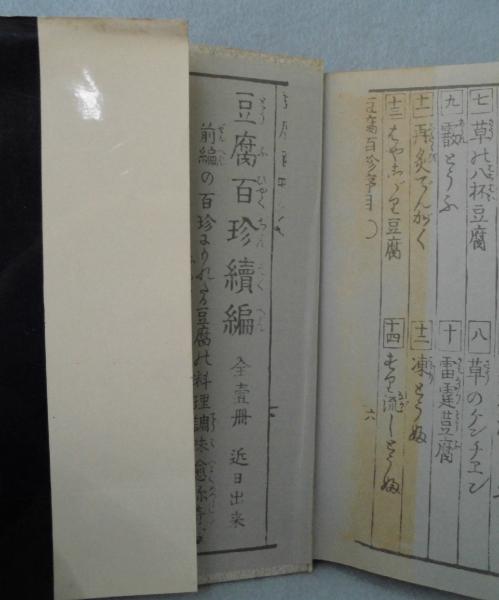 七 草の八杯豆腐
八 草のケンチヱン
九 霰とうふ
十 雷霆豆腐
十一 再炙でんがく
十二 凍とうふ
十三 はやこゞり豆腐
十四 すり流しとうふ
豆腐百珍
六
豆腐百珍續編 全壹冊 近日出来
前編の百珍にもれたる豆腐の料理調味